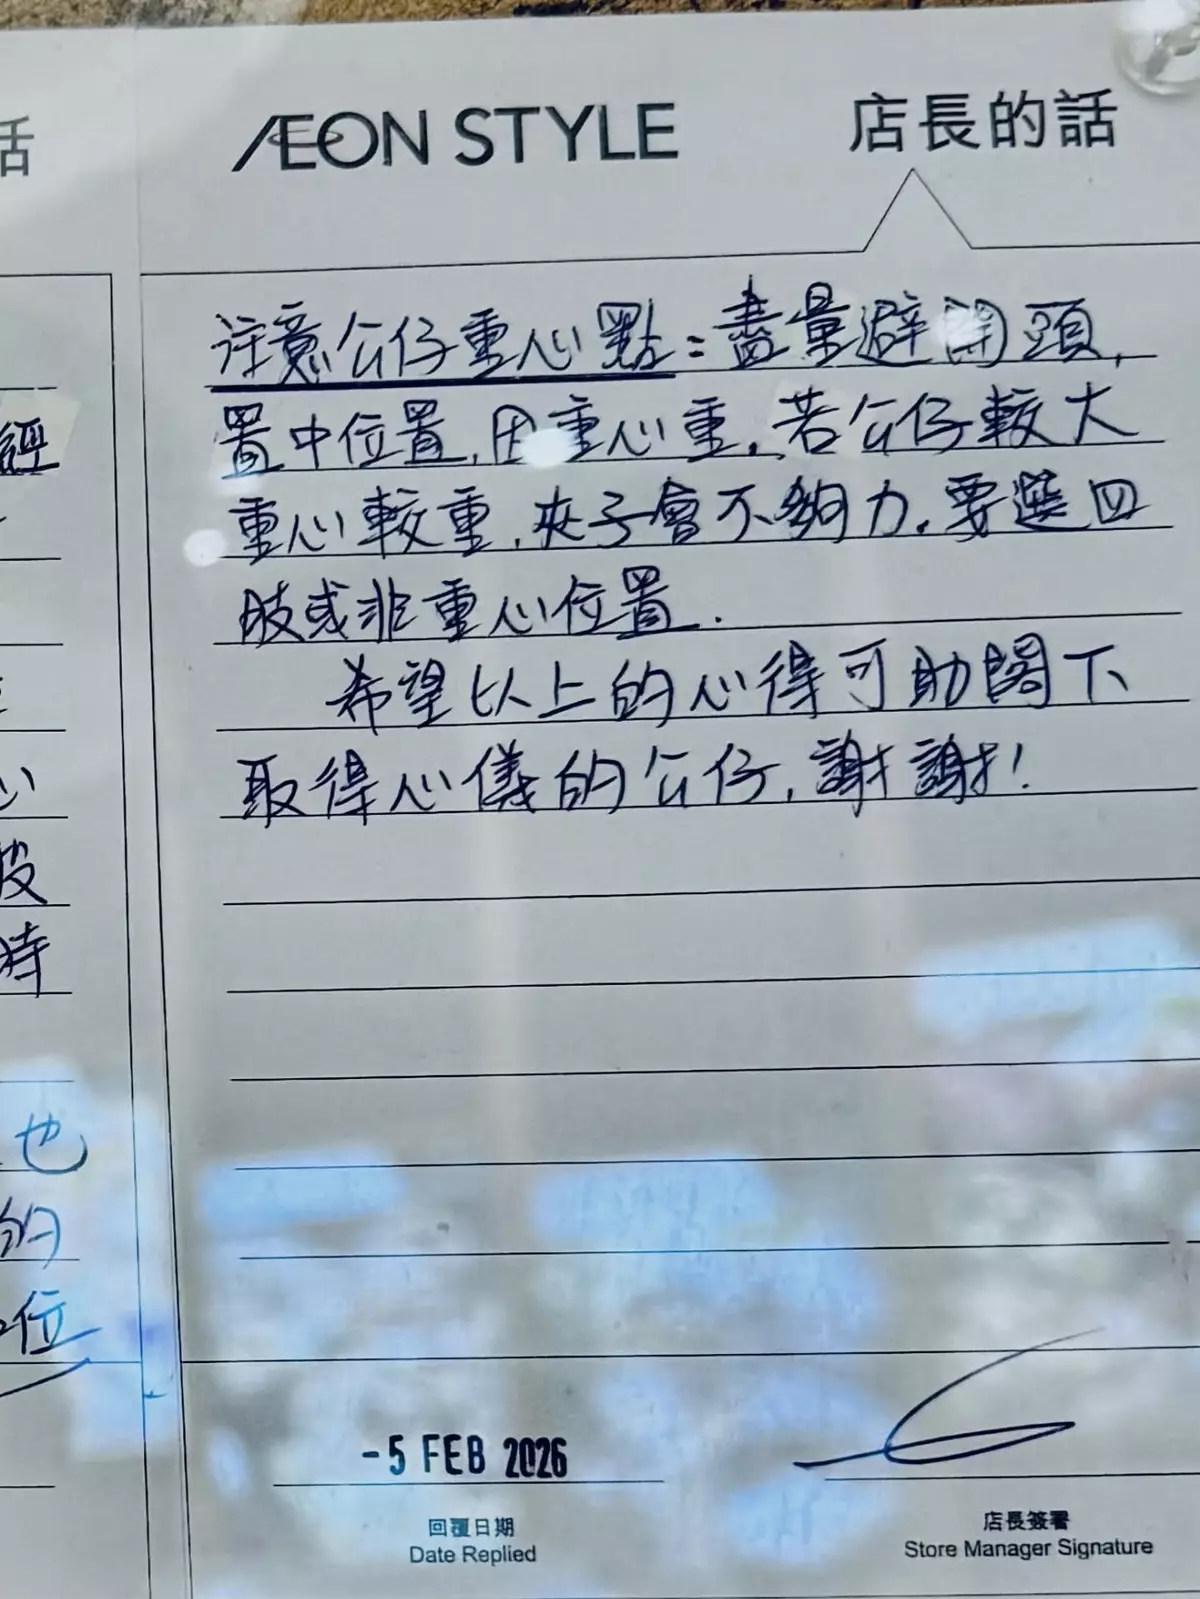 話
ÆON STYLE
店長的話
注意公仔重心點：盡量避開頭,
置中位置,因重心重,若公仔較大
重心較重,夾子會不夠力,要選四
肢或非重心位置.
希望以上的心得可助閣下
取得心儀的公仔,謝謝!
經
心
時
也
的
位
-5 FEB 2026
回覆日期
Date Replied
店長簽署
Store Manager Signature